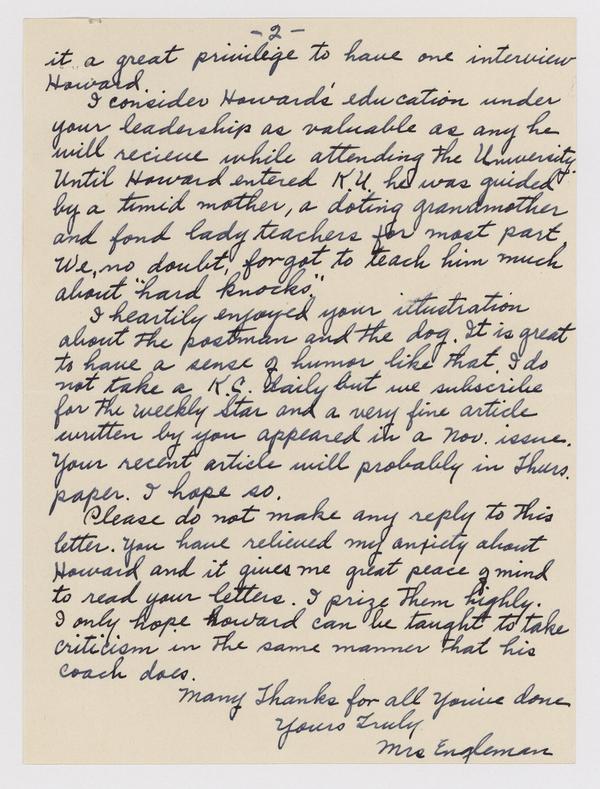 -2-
it a great privilege to have one interview
Howard.
I consider Howard's education under
your leadership as valuable as any he
will recieve while attending the University.
Until Howard entered K.U. he was guided
by a timid mother, a doting grandmother
and fond lady teachers for most part.
We, no doubt, forgot to teach him much
about "hard knocks".
I heartily enjoyed your illustration
about the postman and the dog. It is great
to have a sense of humor like that. I do
not take a K.C. daily but we subscribe
for the weekly Star and a very fine article
written by you appeared in a Nov. issue.
Your recent article will probably in Thurs.
paper. I hope so.
Please do not make any reply to this
letter. You have relieved my anxiety about
Howard and it gives me great peace of mind
to read your letters. I prize them highly.
I only hope Howard can be taught to take
criticism in the same manner that his
coach does.
Many Thanks for all You've done
Yours Truly
Mrs Engleman